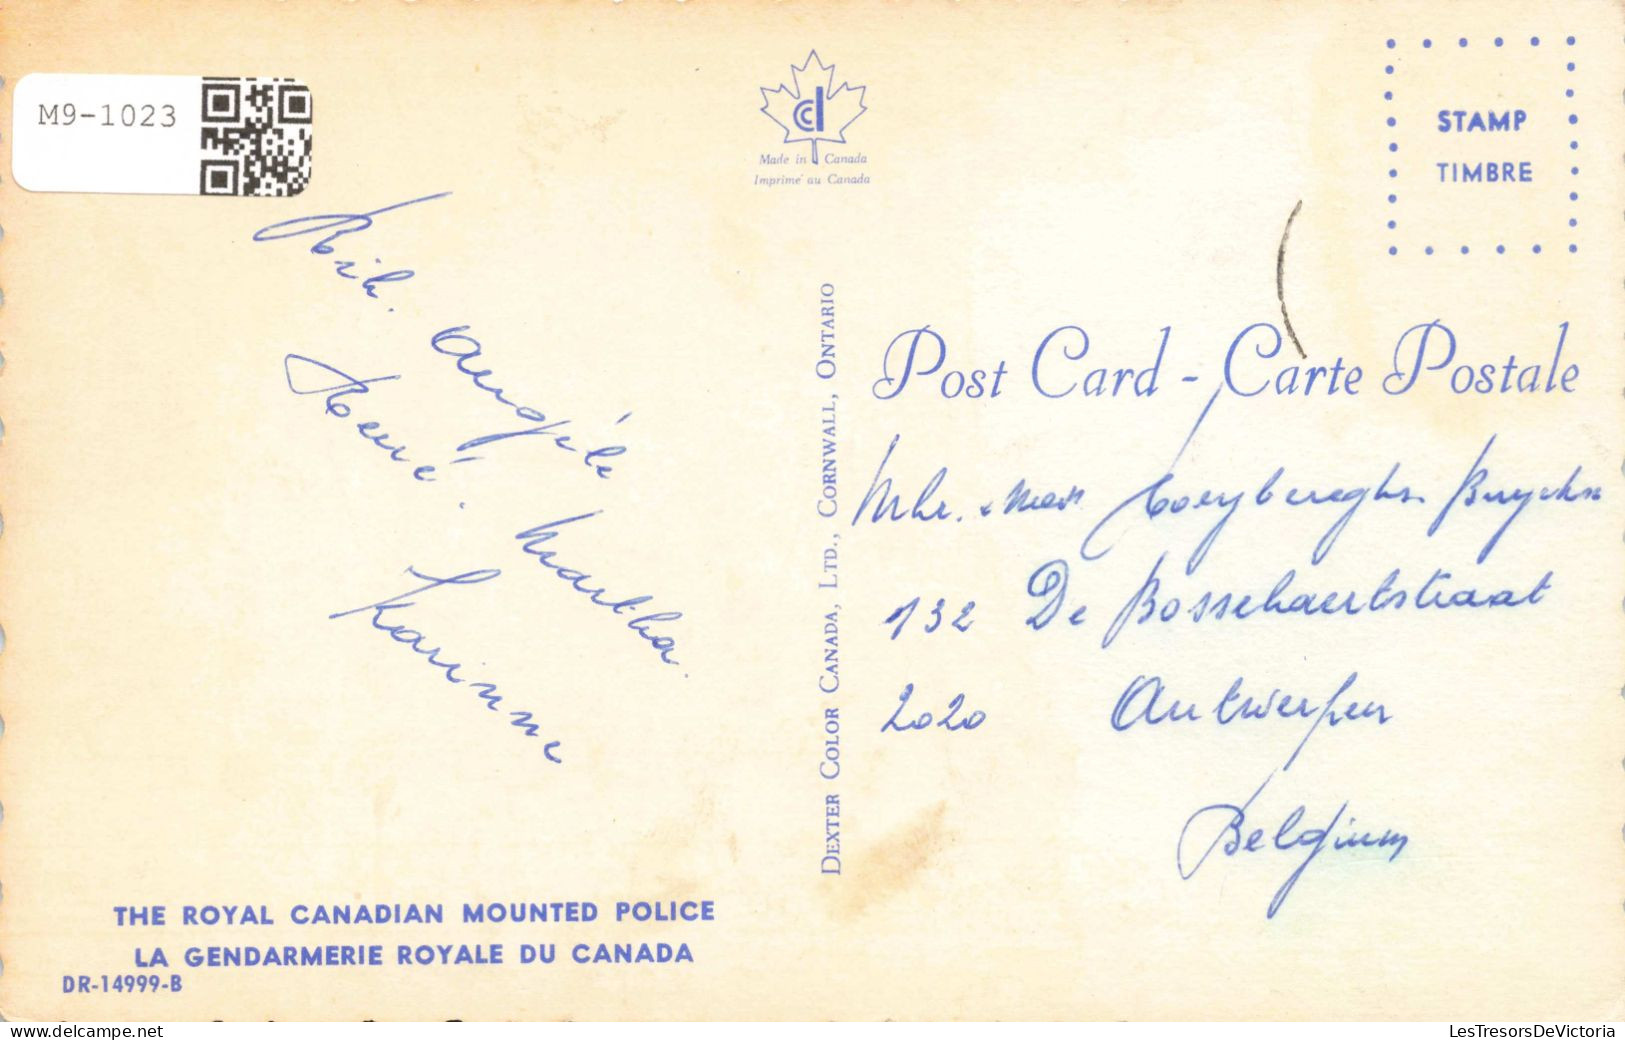 M9-1023
Made in Canada
Imprimé au Canada
STAMP
TIMBRE
Post Card - Carte Postale
DEXTER COLOR CANADA, LTD., CORNWALL, ONTARIO
Angèle
René. Martha.
Karinne
Mhr.
132 De Bosschaertstraat
2020 Antwerpen
Belgium
THE ROYAL CANADIAN MOUNTED POLICE
LA GENDARMERIE ROYALE DU CANADA
DR-14999-B
LesTresorsDeVictoria